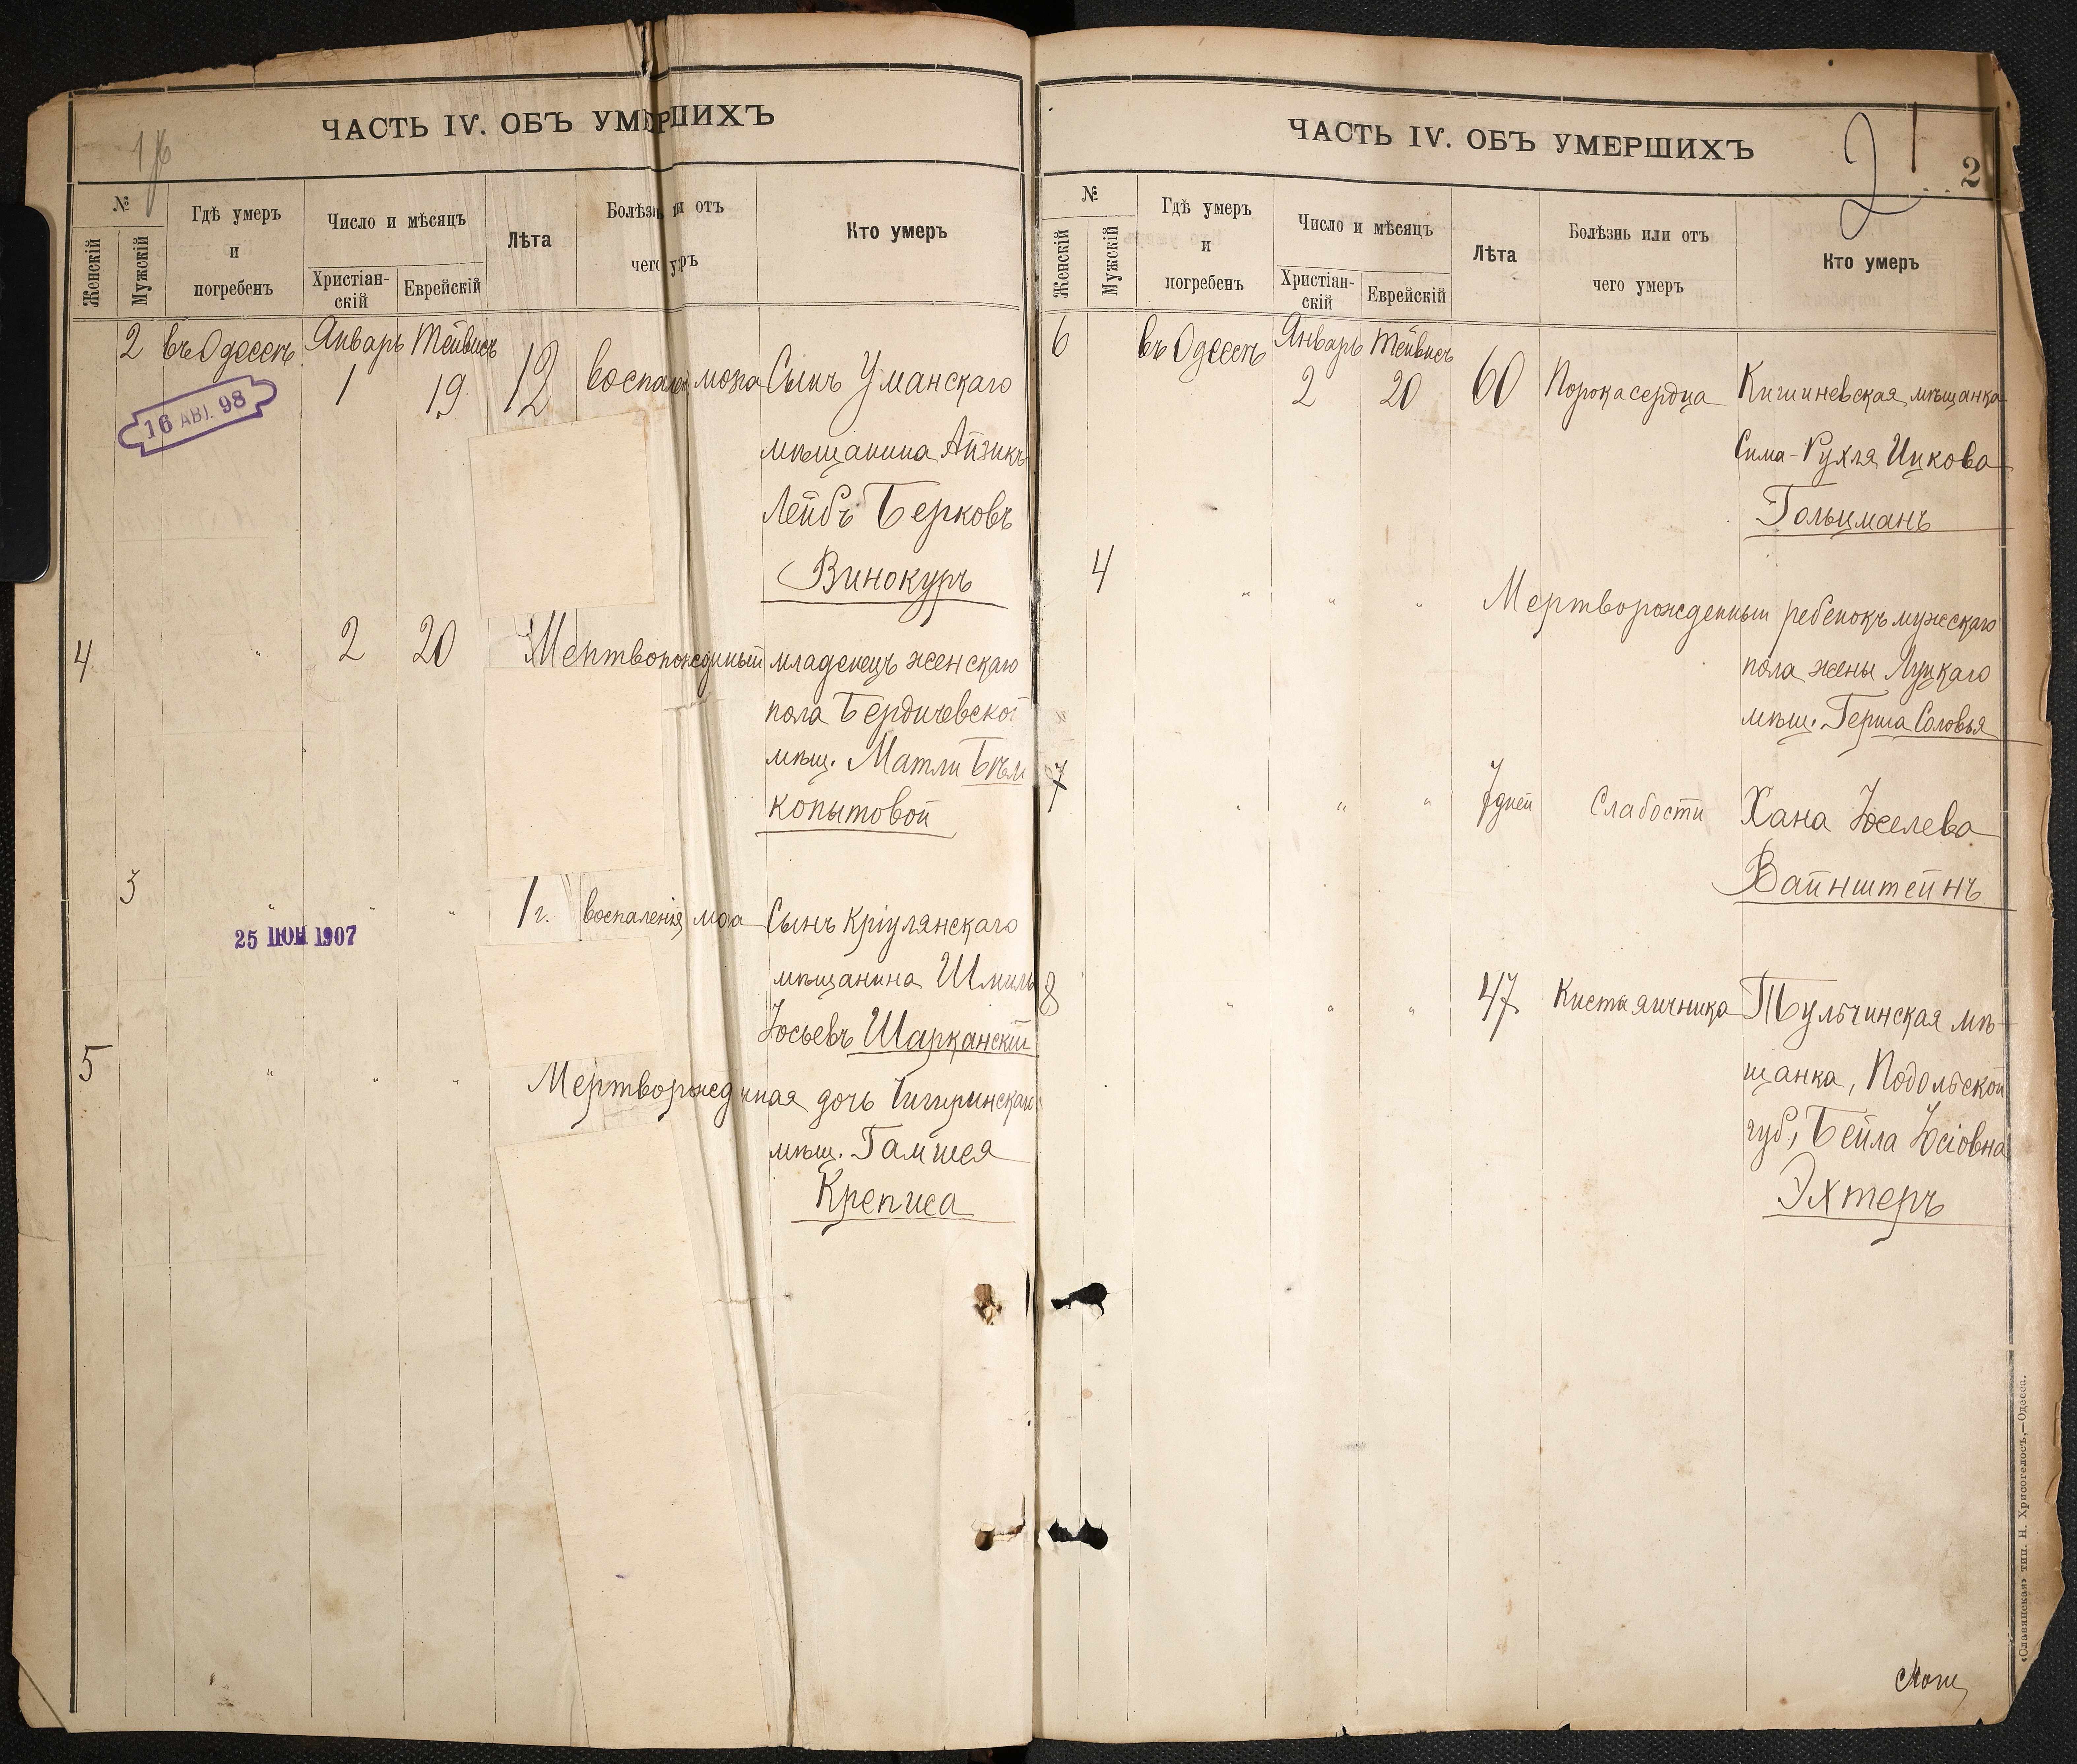 ЧАСТЬ IV. ОБЪ УМЕРШИХЪ
№
Женскій
Мужскій
Гдѣ умеръ
и
погребенъ
Число и мѣсяцъ
Христіан-
скій
Еврейскій
Лѣта
Болѣзнь или отъ
чего умеръ
Кто умеръ
2 въ Одессѣ Январь Тейвисъ
1 19 12 воспален мозга Сынъ Уманскаго
16 АВГ. 98
мѣщанина Айзикъ
Лейбъ Берковъ
Винокуръ
4 " 2 20 Мертворожденный младенецъ женскаго
пола Бердичевской
мѣщ. Матли Бѣли
копытовой
3 " " " 1 г. воспаленія мозга Сынъ Кріулянскаго
25 ІЮН 1907
мѣщанина Шмиль
Іосьевъ Шарканскій
5 " " " Мертворожденная дочь Чигиринскаго
мѣщ. Гамшея
Креписа
ЧАСТЬ IV. ОБЪ УМЕРШИХЪ
2
2
№
Женскій
Мужскій
Гдѣ умеръ
и
погребенъ
Число и мѣсяцъ
Христіан-
скій
Еврейскій
Лѣта
Болѣзнь или отъ
чего умеръ
Кто умеръ
6 въ Одессѣ Январь Тейвисъ
2 20 60 Порока сердца Кишиневская мѣщанка
Сима-Рухля Ицкова
Гольцманъ
4 " " " Мертворожденный ребенокъ мужскаго
пола жены Луцкаго
мѣщ. Герша Соловья
7 " " " 7 дней Слабости Хана Іоселева
Вайнштейнъ
8 " " " 47 Киста яичника Тульчинская мѣ-
щанка, Подольской
губ., Бейла Іосіовна
Эхтеръ
«Славянская» тип. Н. Хрисогелосъ,—Одесса.